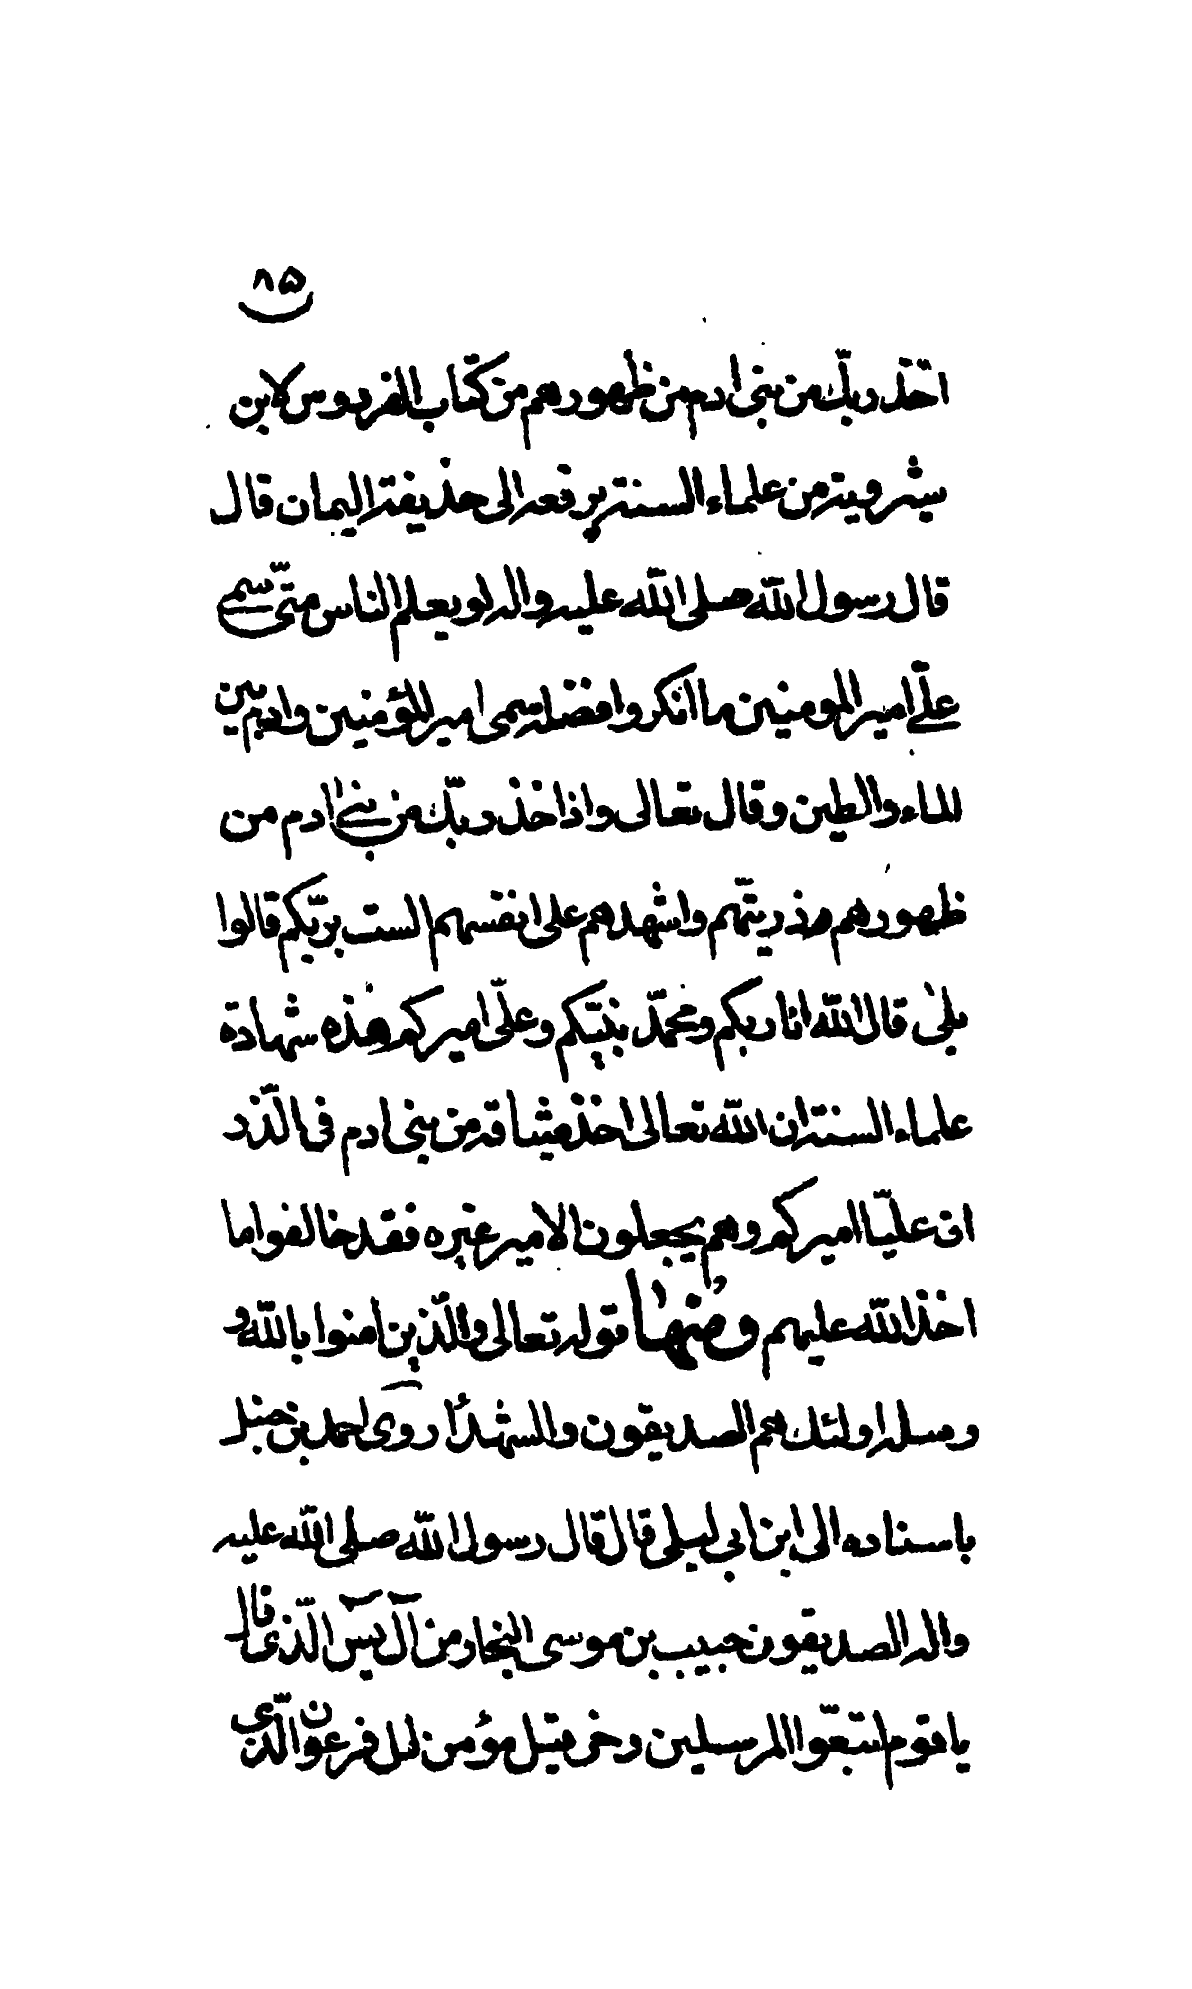 ٨٥
اخذ ربّك من بنى ادم من ظهورهم من كتاب الفردوس لابن
شيرويه من علماء السنة يرفعه الى حذيفة اليمان قال
قال رسول اللّه صلى اللّه عليه واله لو يعلم الناس متىّ سمى
علىّ امير المومنين ما انكروا فضله سمى امير المؤمنين وادم بين
الماء والطين وقال تعالى واذ اخذ ربّك من بنى ادم من
ظهورهم ذريتّهم واشهدهم على انفسهم الست بربّكم قالوا
بلى قال اللّه انا ربكم ومحمّد نبيّكم وعلىّ اميركم هذه شهادة
علماء السنة ان اللّه تعالى اخذ ميثاقه من بنى ادم فى الذّر
ان عليّا اميركم وهم يجعلون الامير غيره فقد خالفوا ما
اخذ اللّه عليهم ومنها قوله تعالى والّذين امنوا باللّه و
رسله اولئك هم الصديقون والشهدأ روى احمد بن حنبل
باسناده الى ابن ابي ليلى قال قال رسول اللّه صلى اللّه عليه
واله الصديقون حبيب بن موسى النجار من آل يس الّذى قال
يا قوم اتبعّوا المرسلين وخرقيل مؤمن ال فرعون الّذى